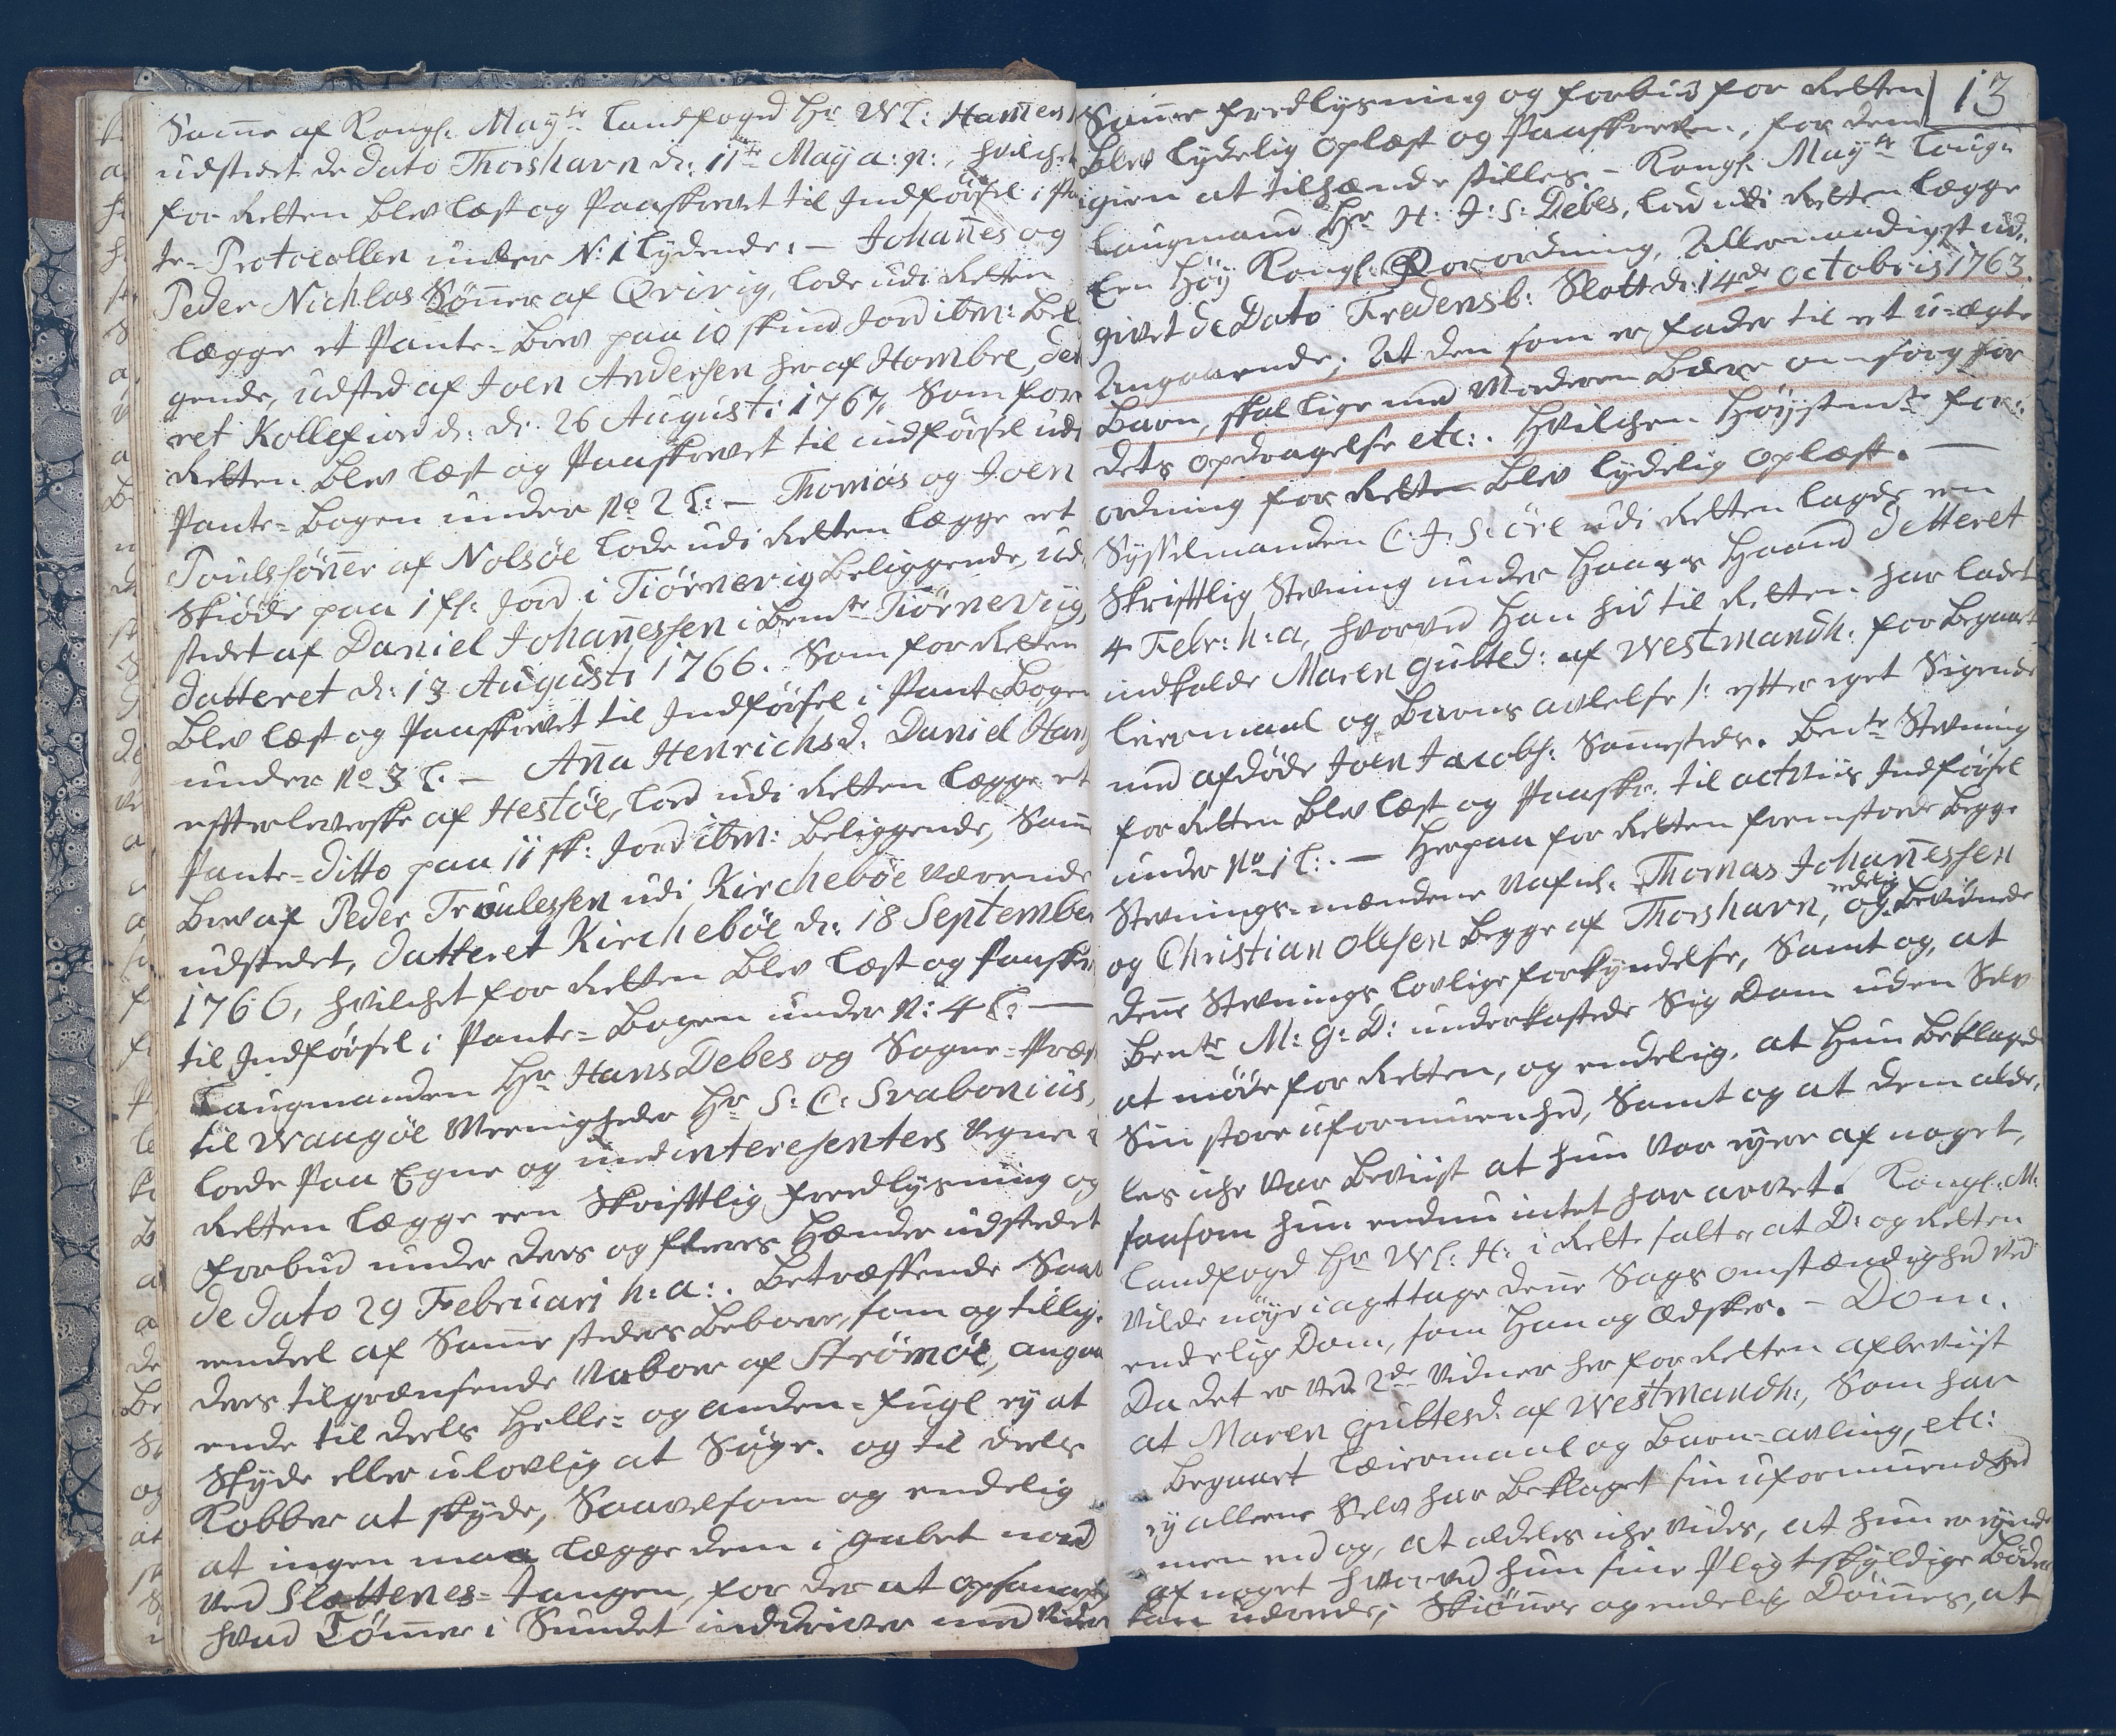 Samme af Kongl: Mayts Landfoged Hr Wl: Hames
udstædt de dato Thorshavn d: 11te Maÿ a: p:, hvilchet
for Retten blev læst og Paaskrevet til Indförsel i Pan
te-Protocollen under N: 1 lydende: – Johannes og
Peder Nichlas Sönner af Qvivig, lode udi Retten
lægge et Pante-Brev paa 10 skind Jord ibm: Bel
gende, udsted af Joen Andersen her af Hombre, dat
ret Kollefiord d: d: 26 Augusti 1767, Som for
Retten blev læst og Paaskrevet til indförsel udi
Pante-Bogen under No 2 l: – Thomas og Joen
Poulssönner af Nolsöe lode udi Retten lægge et
Skiöde paa 1 fl: Jord i Tiörnevig beliggende, ud
stedt af Daniel Johannessen i bemte Tiörnevig,
datteret d: 13 Augusti 1766. Som for Retten
blev læst og Paaskrevet til Indförsel i Pante Bogen
under No 3 l: – Anna Henrichsd: Daniel Hans
efterleverske af Hestöe, lod udi Retten lægge et
Pante-ditto paa 11 sk: Jord ibm: beliggende, Sam
Brev af Peder Troulessen udi Kircheböe værende
udstedet, datteret Kircheböe d: 18 September
1766, hvilchet for Retten blev læst og Paaskre
til Indförsel i Pante-Bogen under N: 4 l: —
Laugmanden Hr Hans Debes og Sogne-Præs
til Waagöe Meenigheder Hr S: C: Svabonius,
lode Paa Egne og med interesenters Vegne
Retten lægge een Skrifttlig fredlÿsning og
forbud under deres og fleeres Hænder udstedet
de dato 29 Februari h: a: . Betræffende Saa
eendeel af Samme steders Beboere, som og tillig
deres tilgrænsende Naboer af Strömöe, angaa
ende til deels Helle- og anden-fugl eÿ at
Skÿde eller ulovlig at Söge. og til deels
Kobber at skÿde, Saavelsom og endelig
at ingen maa lægge dem i gabet nord
ved Slættenes-Tangen, for der at opfange
hvad Tömmer i Sundet inddriver med viden
13
Samme fredlÿsning og forbud for Retten
blev lÿdelig oplæst og Paaskreven, for dem
igien at tilhænde stilles – Kongl: Mayts Laug:
laugmand Hr H: J: S: Debes, lod udi Retten lægge
Een Höÿ Kongl: Forordning, Allernaadigst ud-
givet de Dato Fredensb: Slott d: 14de octobris 1763.
Angaaende; At den som er fader til et u-ægte
Barn, skal lige med Moderen bære omsorg for
dets opdragelse etc: . Hvilchen Höÿstemte for:
ordning for Retten blev lÿdelig oplæst. —
Sysselmanden C: J: Söre udi Retten lagde een
Skrifttlig Stevning under Haans Haand datteret
4 Febr: h: a, hvorved Han hid til Retten har ladet
indkalde Maren gutted: af Westmanh: for begaaet
leiermaal og Barns avlelse /: efter eget Sigende
med afdöde Joen Jacobs: Sammesteds. Bemte Stevning
for Retten blev læst og Paaskr: til activis Indförsel
under No 1 l: . – Herpaa for Retten fremstode begge
Stevnings-mændene Nafnl: Thomas Johanessen
og Christian Olesen begge af Thorshavn, og edelig bevidnede
denne Stevnings lovlige forkÿndelse, Samt og, at
bemte M: G: D: underkastede Sig Dom uden Selv
at möde for Retten, og endelig, at Hun beklagede
Sin store uformuenhed, Samt og at dem aldee,
les iche var bevist at hun var eÿer af noget,
saasom hun endnu intet har arvet. Kongl: M:
Landfogd Hr Wl: H: i Rette satte at D: og Retten
vilde nöÿe iagttage denne Sags omstændighed ved
endelig Dom, som Han og Ædsker. – Dom.
Da det er ved 2de Vidner her for Retten afbeviist
at Maren guttesd: af Westmandh:, Som har
begaaet Læiermaal og Barn-avling, etc:
eÿ alleene Selv har beklaget sin uformuenhed
men end og, at aldeles iche vides, at hun er eÿende
af noget hvorved hun sine Pligtskÿldige Böder
kan udrede; Skiönnes og endelig Dömmes, at